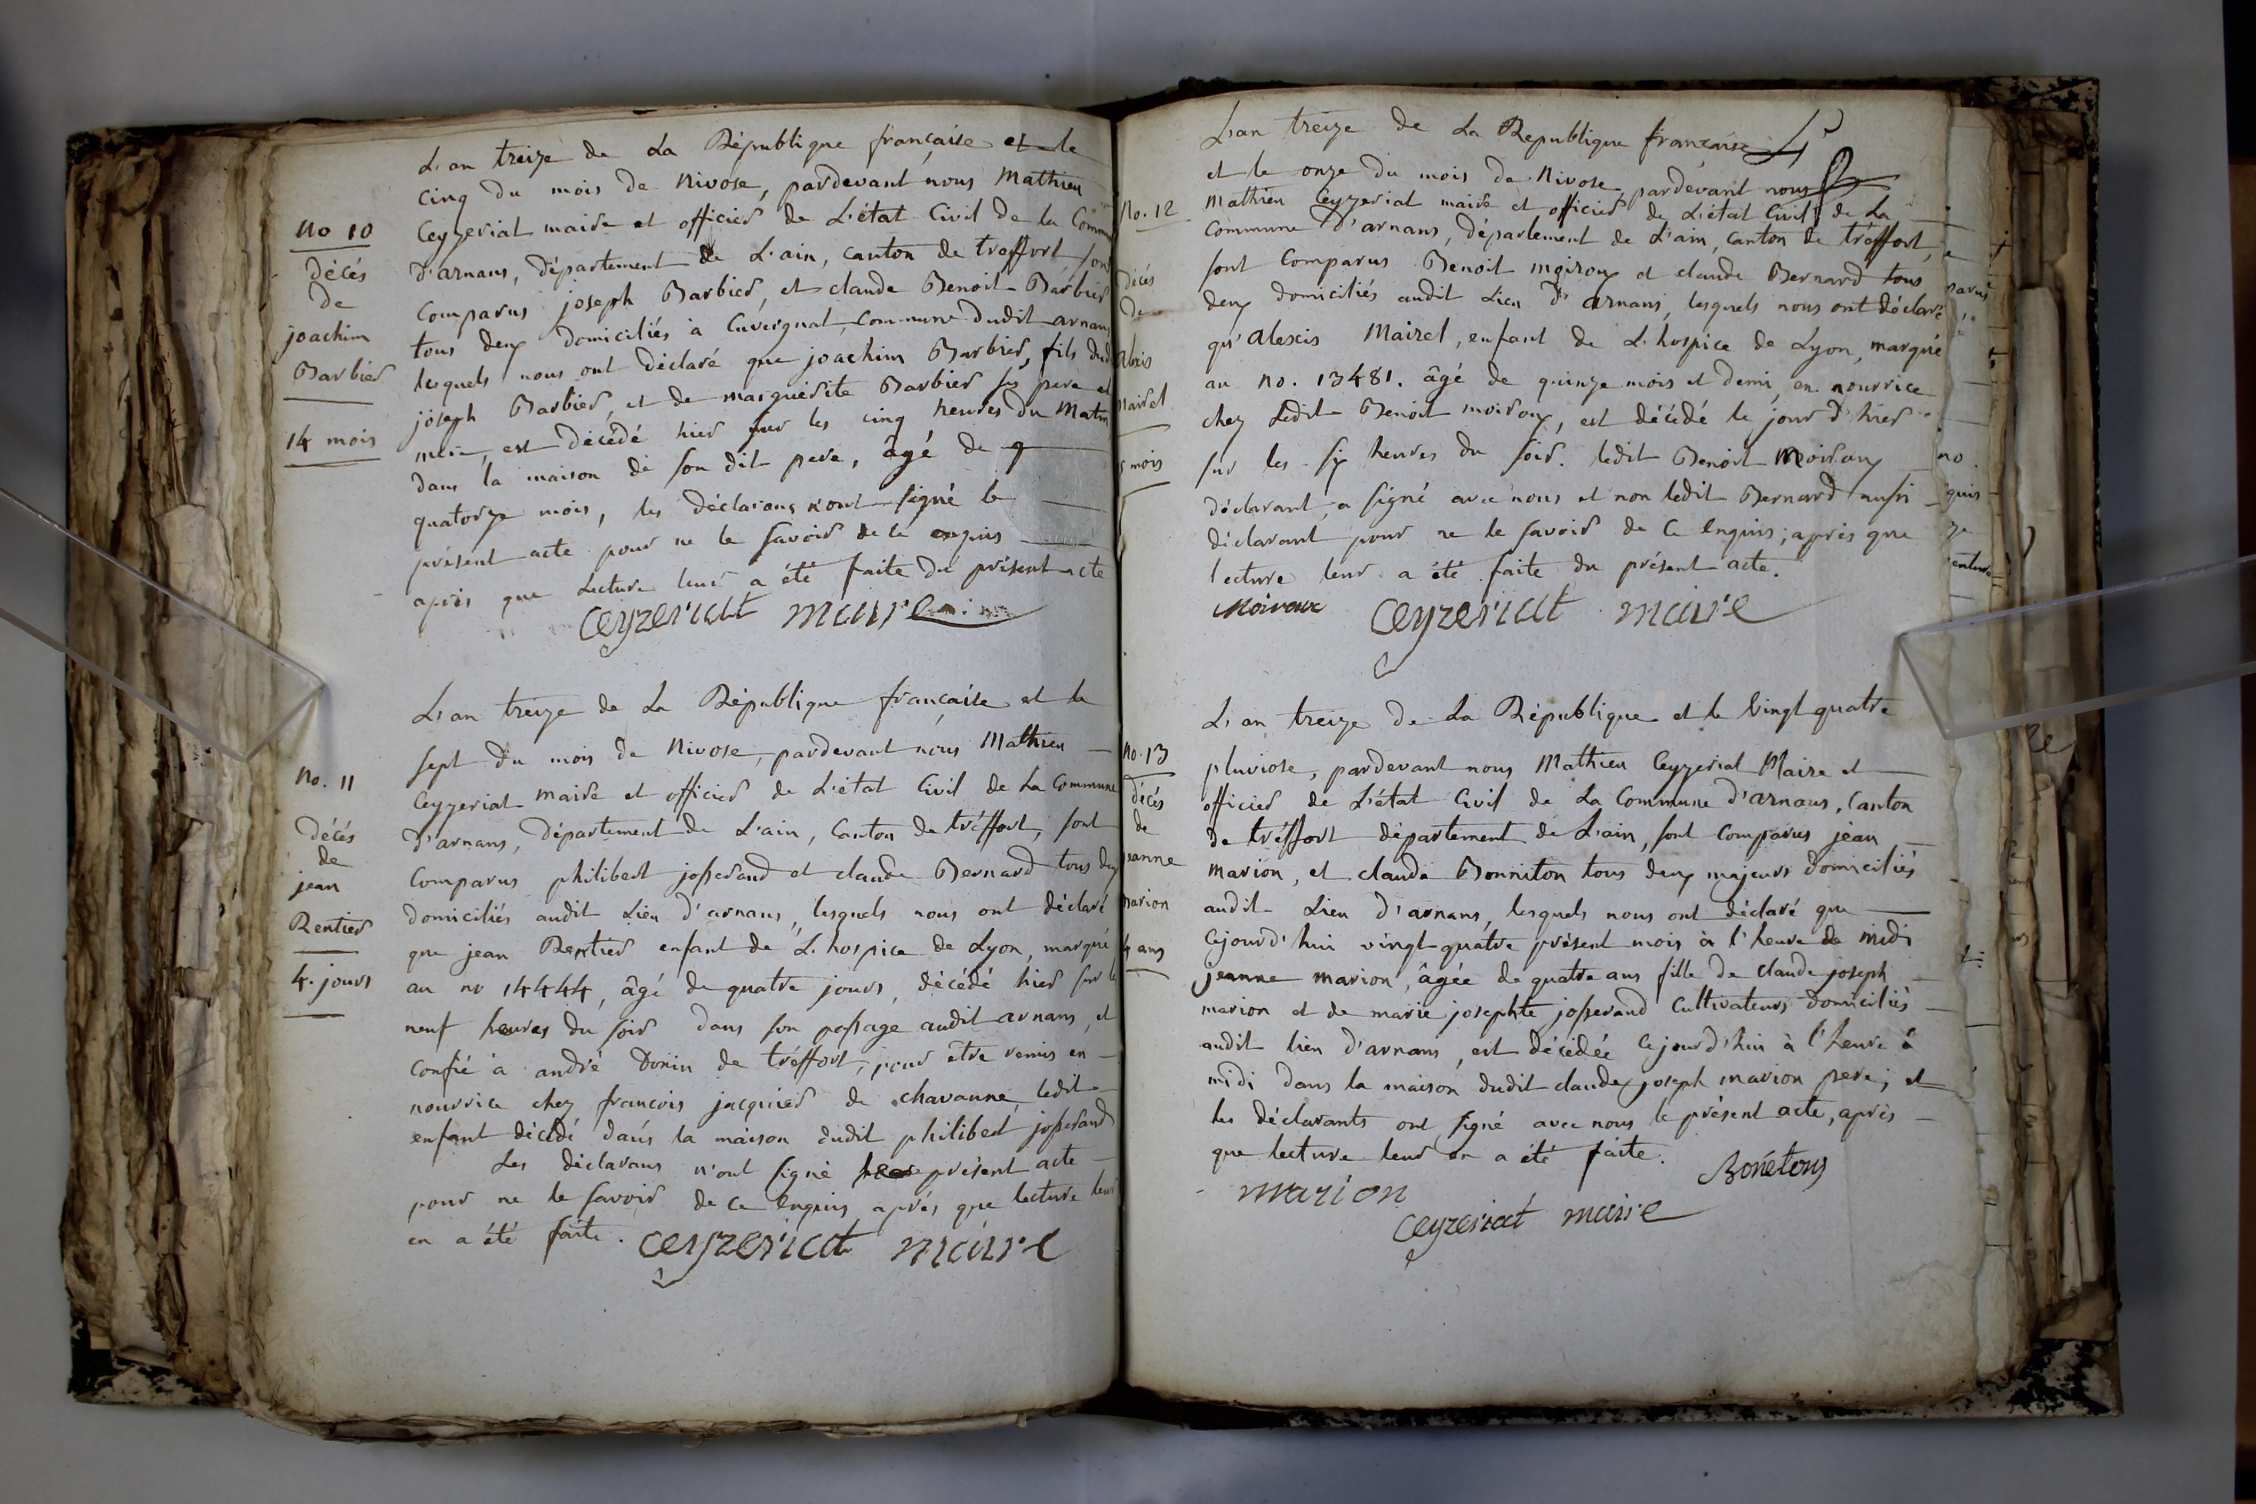 L'an treize de La République française et le
cinq du mois de Nivose, pardevant nous Mathieu
No 10
Ceyzeriat maire et officier de L'état Civil de la Comm
décés
d'arnans, département de L'ain, canton de treffort sont
de
comparus joseph Barbier, et claude Benoit Barbier
joachim
tous deux domiciliés à Cuvergnat, Commune dudit arnans
Barbier
lesquels nous ont déclaré que joachim Barbier, fils dud
joseph Barbier, et de marguerite Barbier ses pere et
14 mois
mere, est décédé hier sur les cinq heures du Matin
dans la maison de son dit pere, âgé de
quatorze mois, les déclarans n'ont signé le
présent acte pour ne le savoir de ce enquis
après que Lecture leur a été faite du présent acte
ceyzeriat maire
L'an treize de La République française et le
sept du mois de Nivose, pardevant nous Mathieu
No. 11
Ceyzeriat maire et officier de L'état Civil de La Commune
décés
d'arnans, département de L'ain, Canton de tréffort, sont
de
Comparus philibert josserand et claude Bernard tous deux
jean
domiciliés audit Lieu d'arnans, lesquels nous ont déclaré
Rentier
que jean Rentier enfant de L'hospice de Lyon, marqué
4. jours
au no 14444, âgé de quatre jours, décédé hier sur le
neuf heures du soir dans son passage audit arnans, et
Confié à andré Donin de tréffort, pour être remis en
nourrice chez francois jacquier de chavanne, ledit
enfant décédé dans la maison dudit philibert josserand
Les déclarans n'ont signé présent acte
pour ne le savoir de ce enquis après que lecture leur
en a été faite.
ceyzeriat maire
L'an treize de La Republique française
et le onze du mois de Nivose, pardevant nous
No. 12
Mathieu Ceyzeriat maire et officier de L'état Civil de La
Commune d'arnans, département de L'ain, canton de tréffort,
décés
sont Comparus Benoit moiroux et claude Bernard tous
de
deux domiciliés audit Lieu d'arnans, lesquels nous ont déclaré
qu'alexis Mairel, enfant de L'hospice de Lyon, marqué
mairel
au no. 13481. âgé de quinze mois et demi, en nourrice
chez Ledit Benoit moiroux, est décédé le jour d'hier
mois
sur les six heures du soir. ledit Benoit Moiroux
déclarant, a signé avec nous et non ledit Bernard aussi
déclarant pour ne le savoir de Ce Enquis; après que
lecture leur a été faite du présent acte.
Moiroux ceyzeriat maire
L'an treize de La République et le Vingt quatre
No. 13
pluviose, pardevant nous Mathieu Ceyzeriat Maire et
décés
officier de L'état Civil de La Commune d'arnans, Canton
de
de tréffort département de L'ain, sont comparus jean
jeanne
marion, et claude Bonniton tous deux majeurs domiciliés
marion
audit Lieu d'arnans, lesquels nous ont déclaré que
4 ans
Cejourd'hui vingt quatre présent mois à l'heure de midi
jeanne marion, âgée de quatre ans fille de claude joseph
marion et de marie josephte josserand Cultivateurs domiciliés
audit lieu d'arnans, est décédée Cejourd'hui à l'heure à
midi dans la maison dudit claude joseph marion pere, et
les déclarants ont signé avec nous le présent acte, après
que lecture leur en a été faite.
Bonetons
marion
ceyzeriat maire